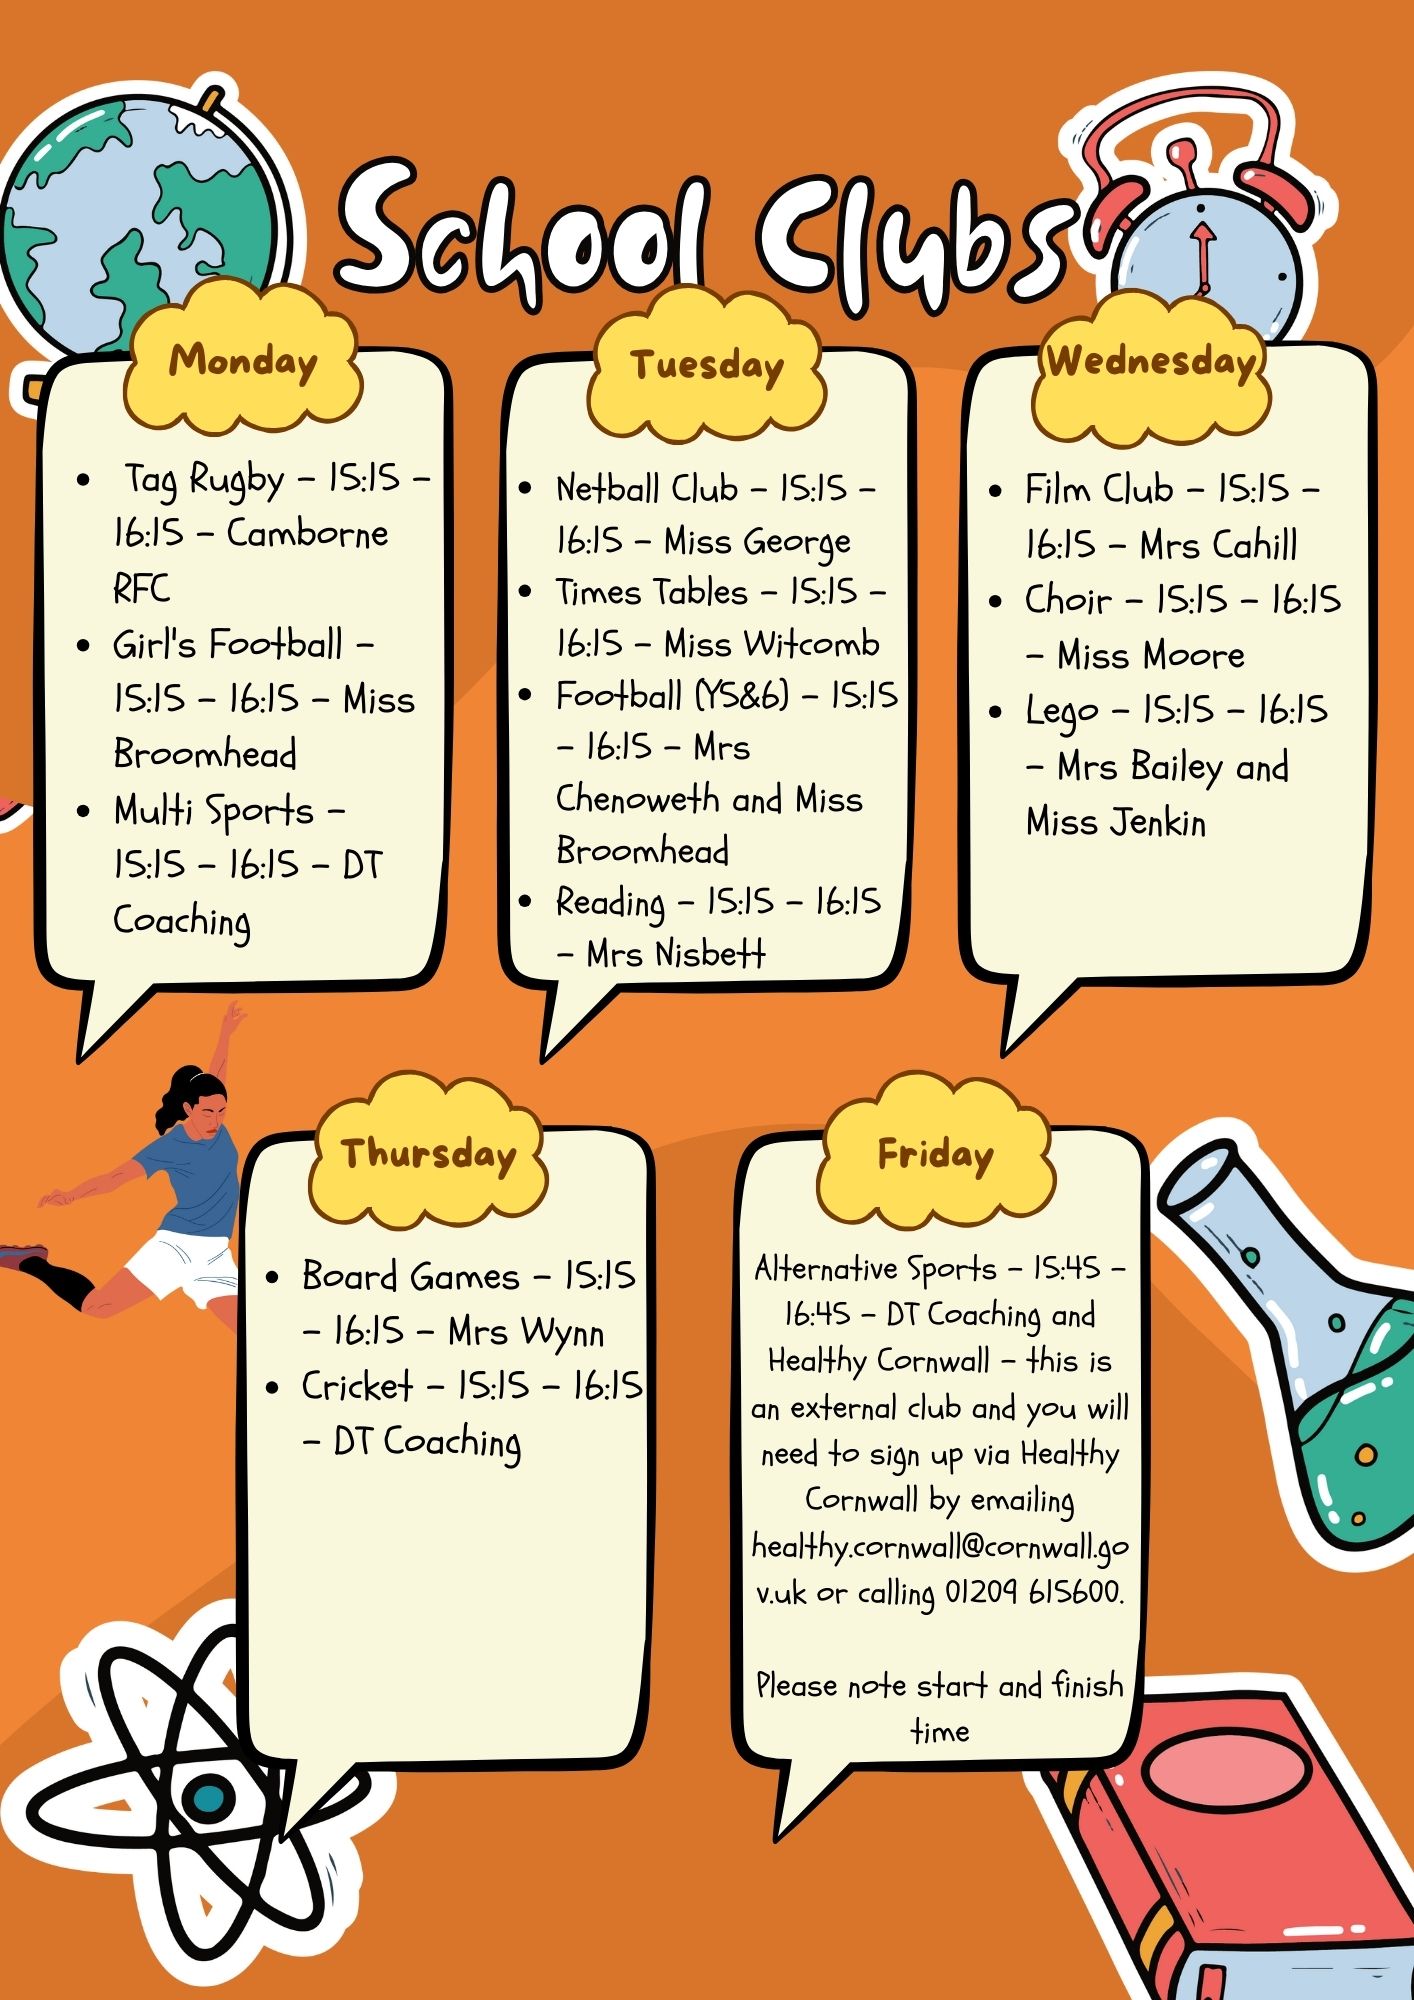 School Clubs
Monday
• Tag Rugby – 15:15 –
16:15 – Camborne
RFC
• Girl's Football –
15:15 – 16:15 – Miss
Broomhead
• Multi Sports –
15:15 – 16:15 – DT
Coaching
Tuesday
• Netball Club – 15:15 –
16:15 – Miss George
• Times Tables – 15:15 –
16:15 – Miss Witcomb
• Football (Y5&6) – 15:15
– 16:15 – Mrs
Chenoweth and Miss
Broomhead
• Reading – 15:15 – 16:15
– Mrs Nisbett
Wednesday
• Film Club – 15:15 –
16:15 – Mrs Cahill
• Choir – 15:15 – 16:15
– Miss Moore
• Lego – 15:15 – 16:15
– Mrs Bailey and
Miss Jenkin
Thursday
• Board Games – 15:15
– 16:15 – Mrs Wynn
• Cricket – 15:15 – 16:15
– DT Coaching
Friday
Alternative Sports – 15:45 –
16:45 – DT Coaching and
Healthy Cornwall – this is
an external club and you will
need to sign up via Healthy
Cornwall by emailing
healthy.cornwall@cornwall.go
v.uk or calling 01209 615600.
Please note start and finish
time